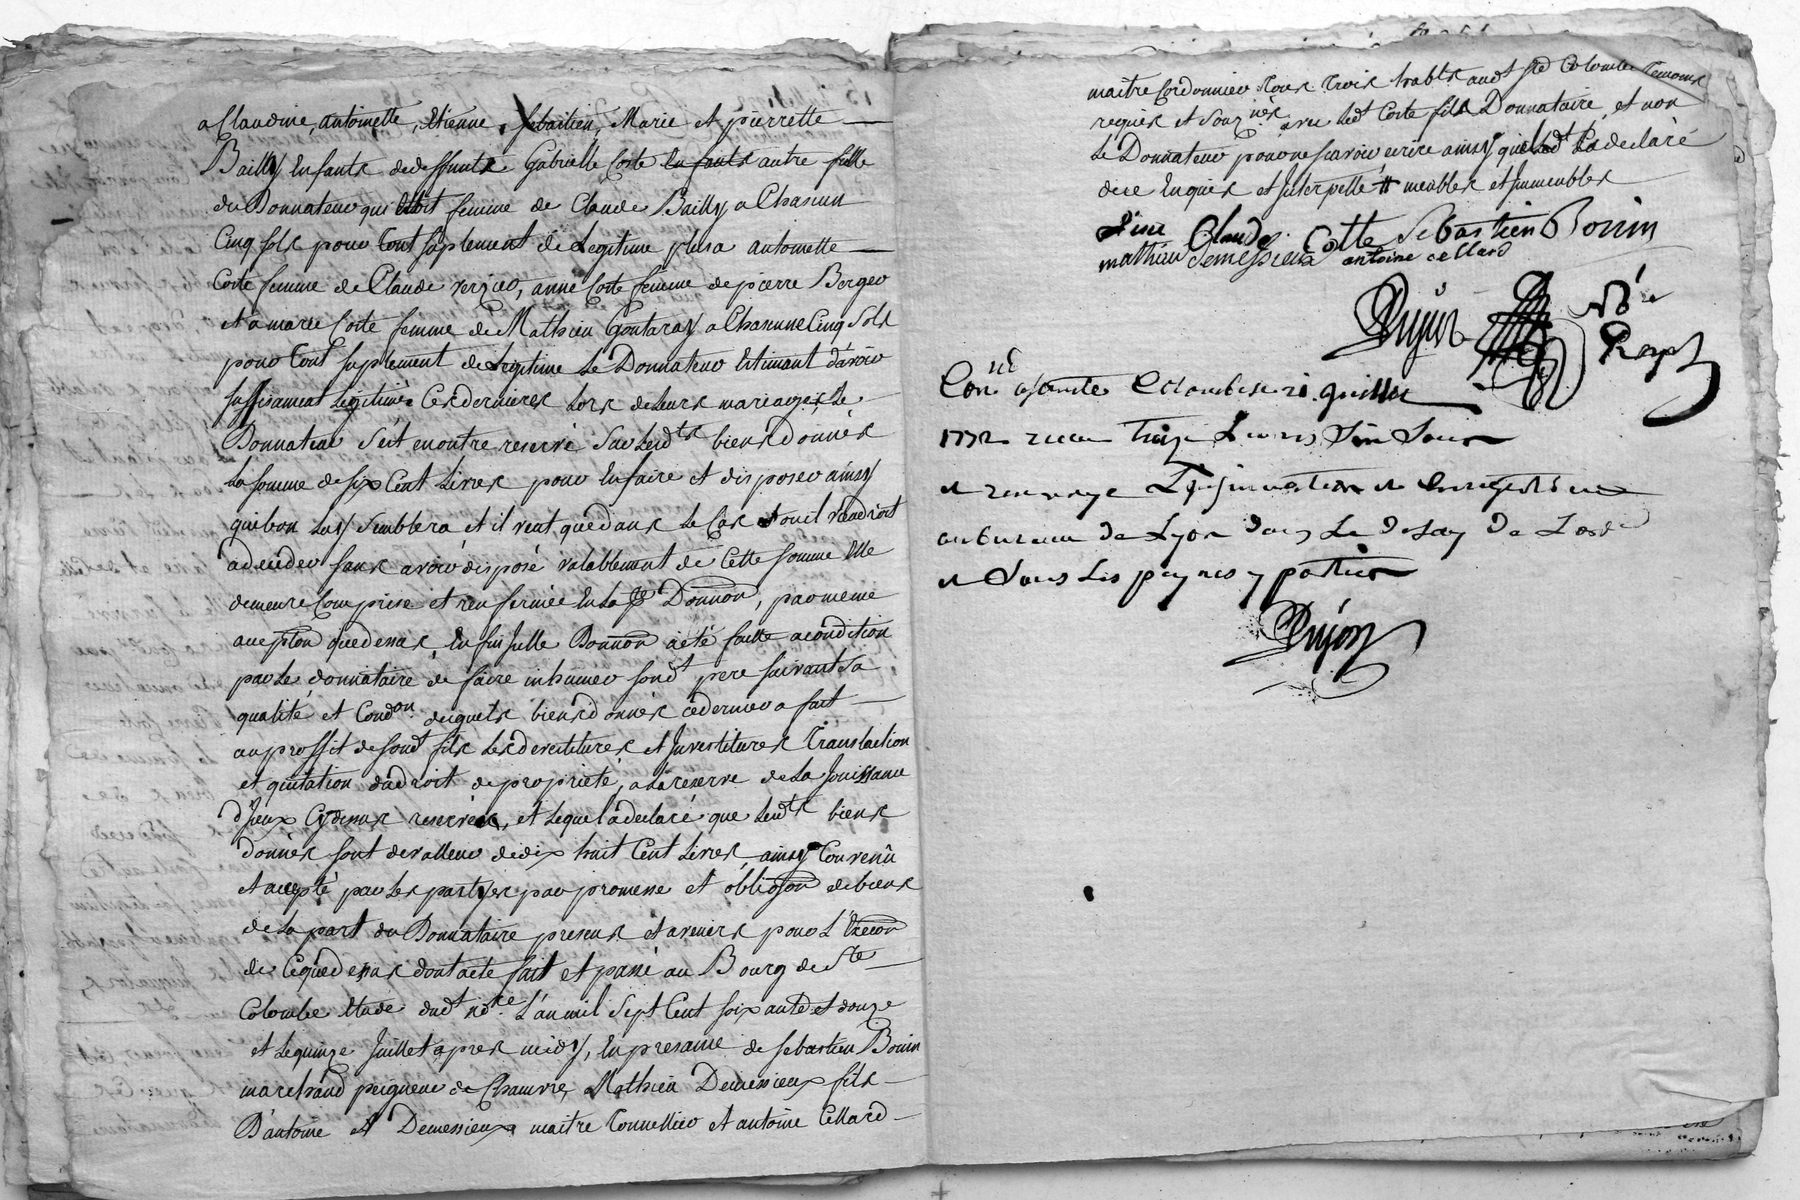 a Claudine, antoinette, Etienne, Sebastien, Marie et pierrette
Bailly Enfants dedeffunte Gabrielle Cote Enfants autre fille
du Donnateur qui Etoit femme de Claude Bailly a Chacun
Cinq sols pour tout suplement de Legitime plus a antoinette
Cote femme de Claude verzieu, anne Cote femme de pierre Berger
et a marie Cote femme de Mathieu Gontaray a Chacune Cinq Sols
pour tout suplement de Legitime Le Donnateur Estimant d'avoir
suffisament Legitimé Ces dernieres Lors de Leurs mariages, Le
Donnateur s'est en outre reservé Sur Lesdts biens donnés
La somme de six Cent Livres pour En faire et disposer ainsy
que bon Luy Semblera et il veut que dans Le Cas ou il viendroit
a deceder sans avoir disposé valablement de Cette somme Elle
demeure Comprise et renfermée En La pte Donnon, par meme
accepton que dessus, En fin Jcelle Donnon a été faitte a condition
par Le donnataire de faire inhumer sondt pere suivant sa
qualité et Condon. desquels biens donnés ce dernier a fait
au proffit de sondt fils Les devestitures et Jnvestitures Translation
et quitation du droit de proprieté, a La reserve de La Jouissance
d'Jceux Cydessus reservée, et Lequel a declaré que Lesdts biens
donnés sont de valleur de dix huit Cent Livres, ainsy Convenû
et accepté par Les partyes par promesse et obligon de biens
de La part du Donnataire presens et avenirs pour L'Execon
de Ceque dessus dont acte fait et passé au Bourg de Ste
Colombe Etude dudt nore. L'an mil Sept Cent soixante et douze
et Le quinze Juillet apres midy, En presance de sebastien Bonin
marchand peigneur de Chanvre, Mathieu Demessieux fils
D'antoine Demessieux maitre Tonnellier et antoine Cellard
maitre Cordonnier tous trois habts audt Ste Colombe Temoins
requis et sousnés avec Ledt Cote fils Donnataire, et non
Le Donnateur pour ne scavoir ecrire ainsy qu'il a declaré
de ce Enquis et Jnterpellé # meubles et Jmmeubles
Claude Cotte Sebastien Bonin
mathieu Demessieux antoine cellard
Dujon nore
Royal
Conlé a Ste Colombe le 21 Juillet
1772 recu Treize Livres
et renvoye L'insinuation et enregistrement
au bureau de Lyon dans Le delay de L'ord
et sous Les peynes y portées
Dujon